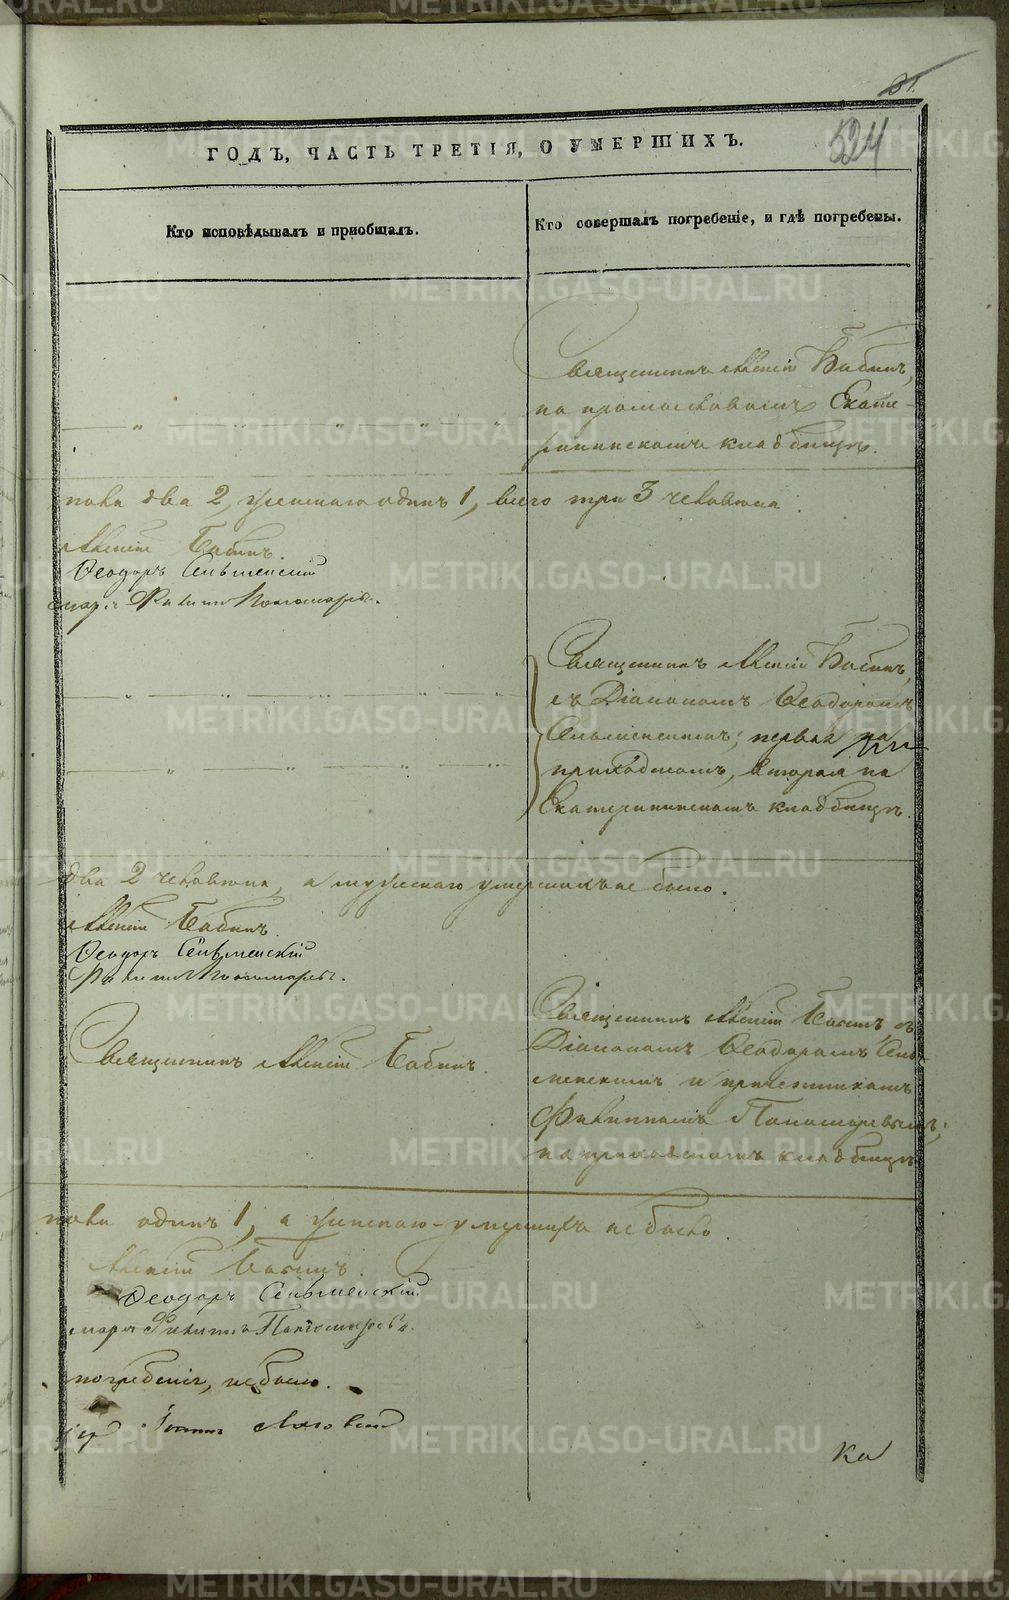 31.
524
ГОДЪ, ЧАСТЬ ТРЕТІЯ, О УМЕРШИХЪ.
Кто исповѣдывалъ и пріобщалъ.
Кто совершалъ погребеніе, и гдѣ погребены.
Священникъ Алексій Бабинъ,
на Екате-
рининскомъ кладбищѣ.
пола два 2, женскаго одинъ 1, всего три 3 человѣка.
Алексій Бабинъ.
Ѳеодоръ Сельменскій
Филиппъ Пономаревъ.
Священникъ Алексій Бабинъ,
съ Діакономъ Ѳеодоромъ
Сельменскимъ; первая на
приходскомъ, вторая на
Екатерининскомъ кладбищѣ.
два 2 человѣка, а мужскаго умершихъ не было.
Алексій Бабинъ.
Ѳеодоръ Сельменскій
Филиппъ Пономаревъ.
Священникъ Алексій Бабинъ.
Священникъ Алексій Бабинъ съ
Діакономъ Ѳеодоромъ Сель-
менскимъ и причетникомъ
Филиппомъ Пономаревымъ;
на приходскомъ кладбищѣ
пола одинъ 1, а женскаго умершихъ не было.
Алексій Бабинъ.
Ѳеодоръ Сельменскій
Филиппъ Пономаревъ.
погребенія, не было.
Ка
METRIKI.GASO-URAL.RU